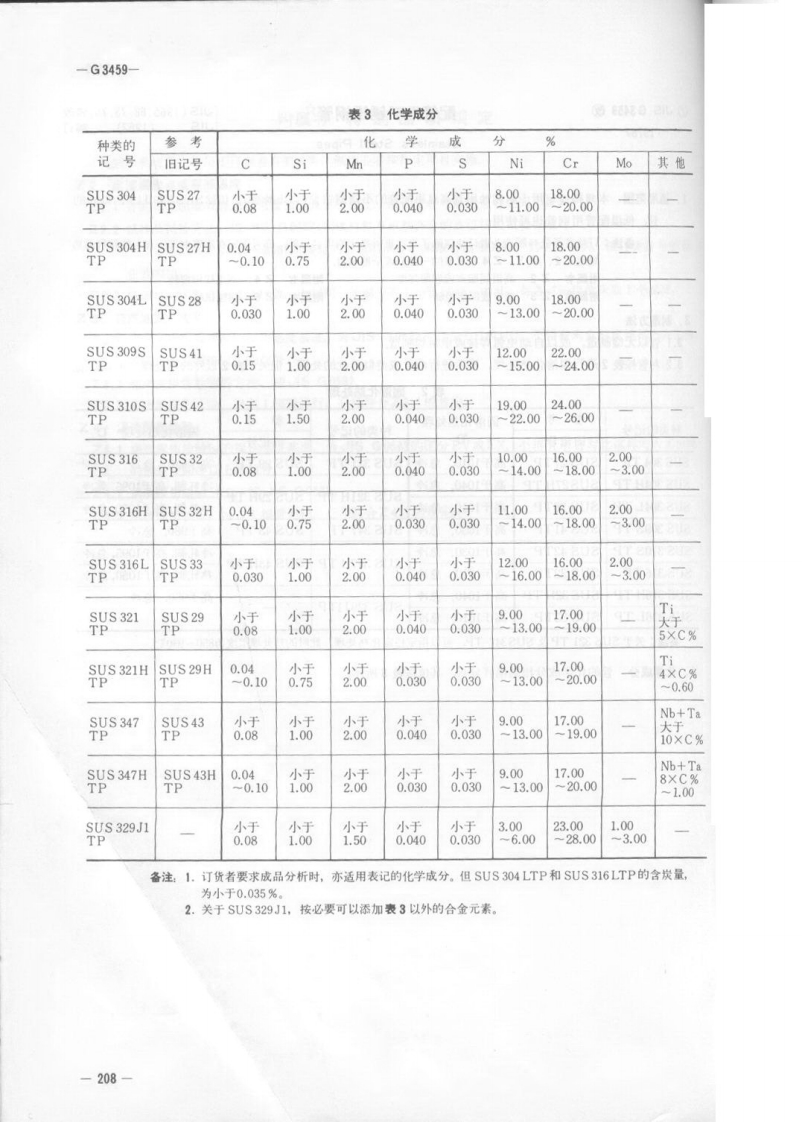 —G3459—
表3 化学成分
种类的记号 参考 化学成分 %
旧记号 C Si Mn P S Ni Cr Mo 其他
SUS 304 SUS 27 小于 小于 小于 小于 小于 8.00 18.00 — —
TP TP 0.08 1.00 2.00 0.040 0.030 ~11.00 ~20.00
SUS 304H SUS 27H 0.04 小于 小于 小于 小于 8.00 18.00 — —
TP TP ~0.10 0.75 2.00 0.040 0.030 ~11.00 ~20.00
SUS 304L SUS 28 小于 小于 小于 小于 小于 9.00 18.00 — —
TP TP 0.030 1.00 2.00 0.040 0.030 ~13.00 ~20.00
SUS 309S SUS 41 小于 小于 小于 小于 小于 12.00 22.00 — —
TP TP 0.15 1.00 2.00 0.040 0.030 ~15.00 ~24.00
SUS 310S SUS 42 小于 小于 小于 小于 小于 19.00 24.00 — —
TP TP 0.15 1.50 2.00 0.040 0.030 ~22.00 ~26.00
SUS 316 SUS 32 小于 小于 小于 小于 小于 10.00 16.00 2.00 —
TP TP 0.08 1.00 2.00 0.040 0.030 ~14.00 ~18.00 ~3.00
SUS 316H SUS 32H 0.04 小于 小于 小于 小于 11.00 16.00 2.00 —
TP TP ~0.10 0.75 2.00 0.030 0.030 ~14.00 ~18.00 ~3.00
SUS 316L SUS 33 小于 小于 小于 小于 小于 12.00 16.00 2.00 —
TP TP 0.030 1.00 2.00 0.040 0.030 ~16.00 ~18.00 ~3.00
SUS 321 SUS 29 小于 小于 小于 小于 小于 9.00 17.00 — Ti 大于
TP TP 0.08 1.00 2.00 0.040 0.030 ~13.00 ~19.00 5×C%
SUS 321H SUS 29H 0.04 小于 小于 小于 小于 9.00 17.00 — Ti 4×C%
TP TP ~0.10 0.75 2.00 0.030 0.030 ~13.00 ~20.00 ~0.60
SUS 347 SUS 43 小于 小于 小于 小于 小于 9.00 17.00 — Nb+Ta 大于
TP TP 0.08 1.00 2.00 0.040 0.030 ~13.00 ~19.00 10×C%
SUS 347H SUS 43H 0.04 小于 小于 小于 小于 9.00 17.00 — Nb+Ta 8×C%
TP TP ~0.10 1.00 2.00 0.030 0.030 ~13.00 ~20.00 ~1.00
SUS 329J1 — 小于 小于 小于 小于 小于 3.00 23.00 1.00 —
TP 0.08 1.00 1.50 0.040 0.030 ~6.00 ~28.00 ~3.00
备注：1. 订货者要求成品分析时，亦适用表记的化学成分。但 SUS 304 LTP 和 SUS 316 LTP 的含炭量，
为小于0.035%。
2. 关于 SUS 329 J1，按必要可以添加表3以外的合金元素。
— 208 —